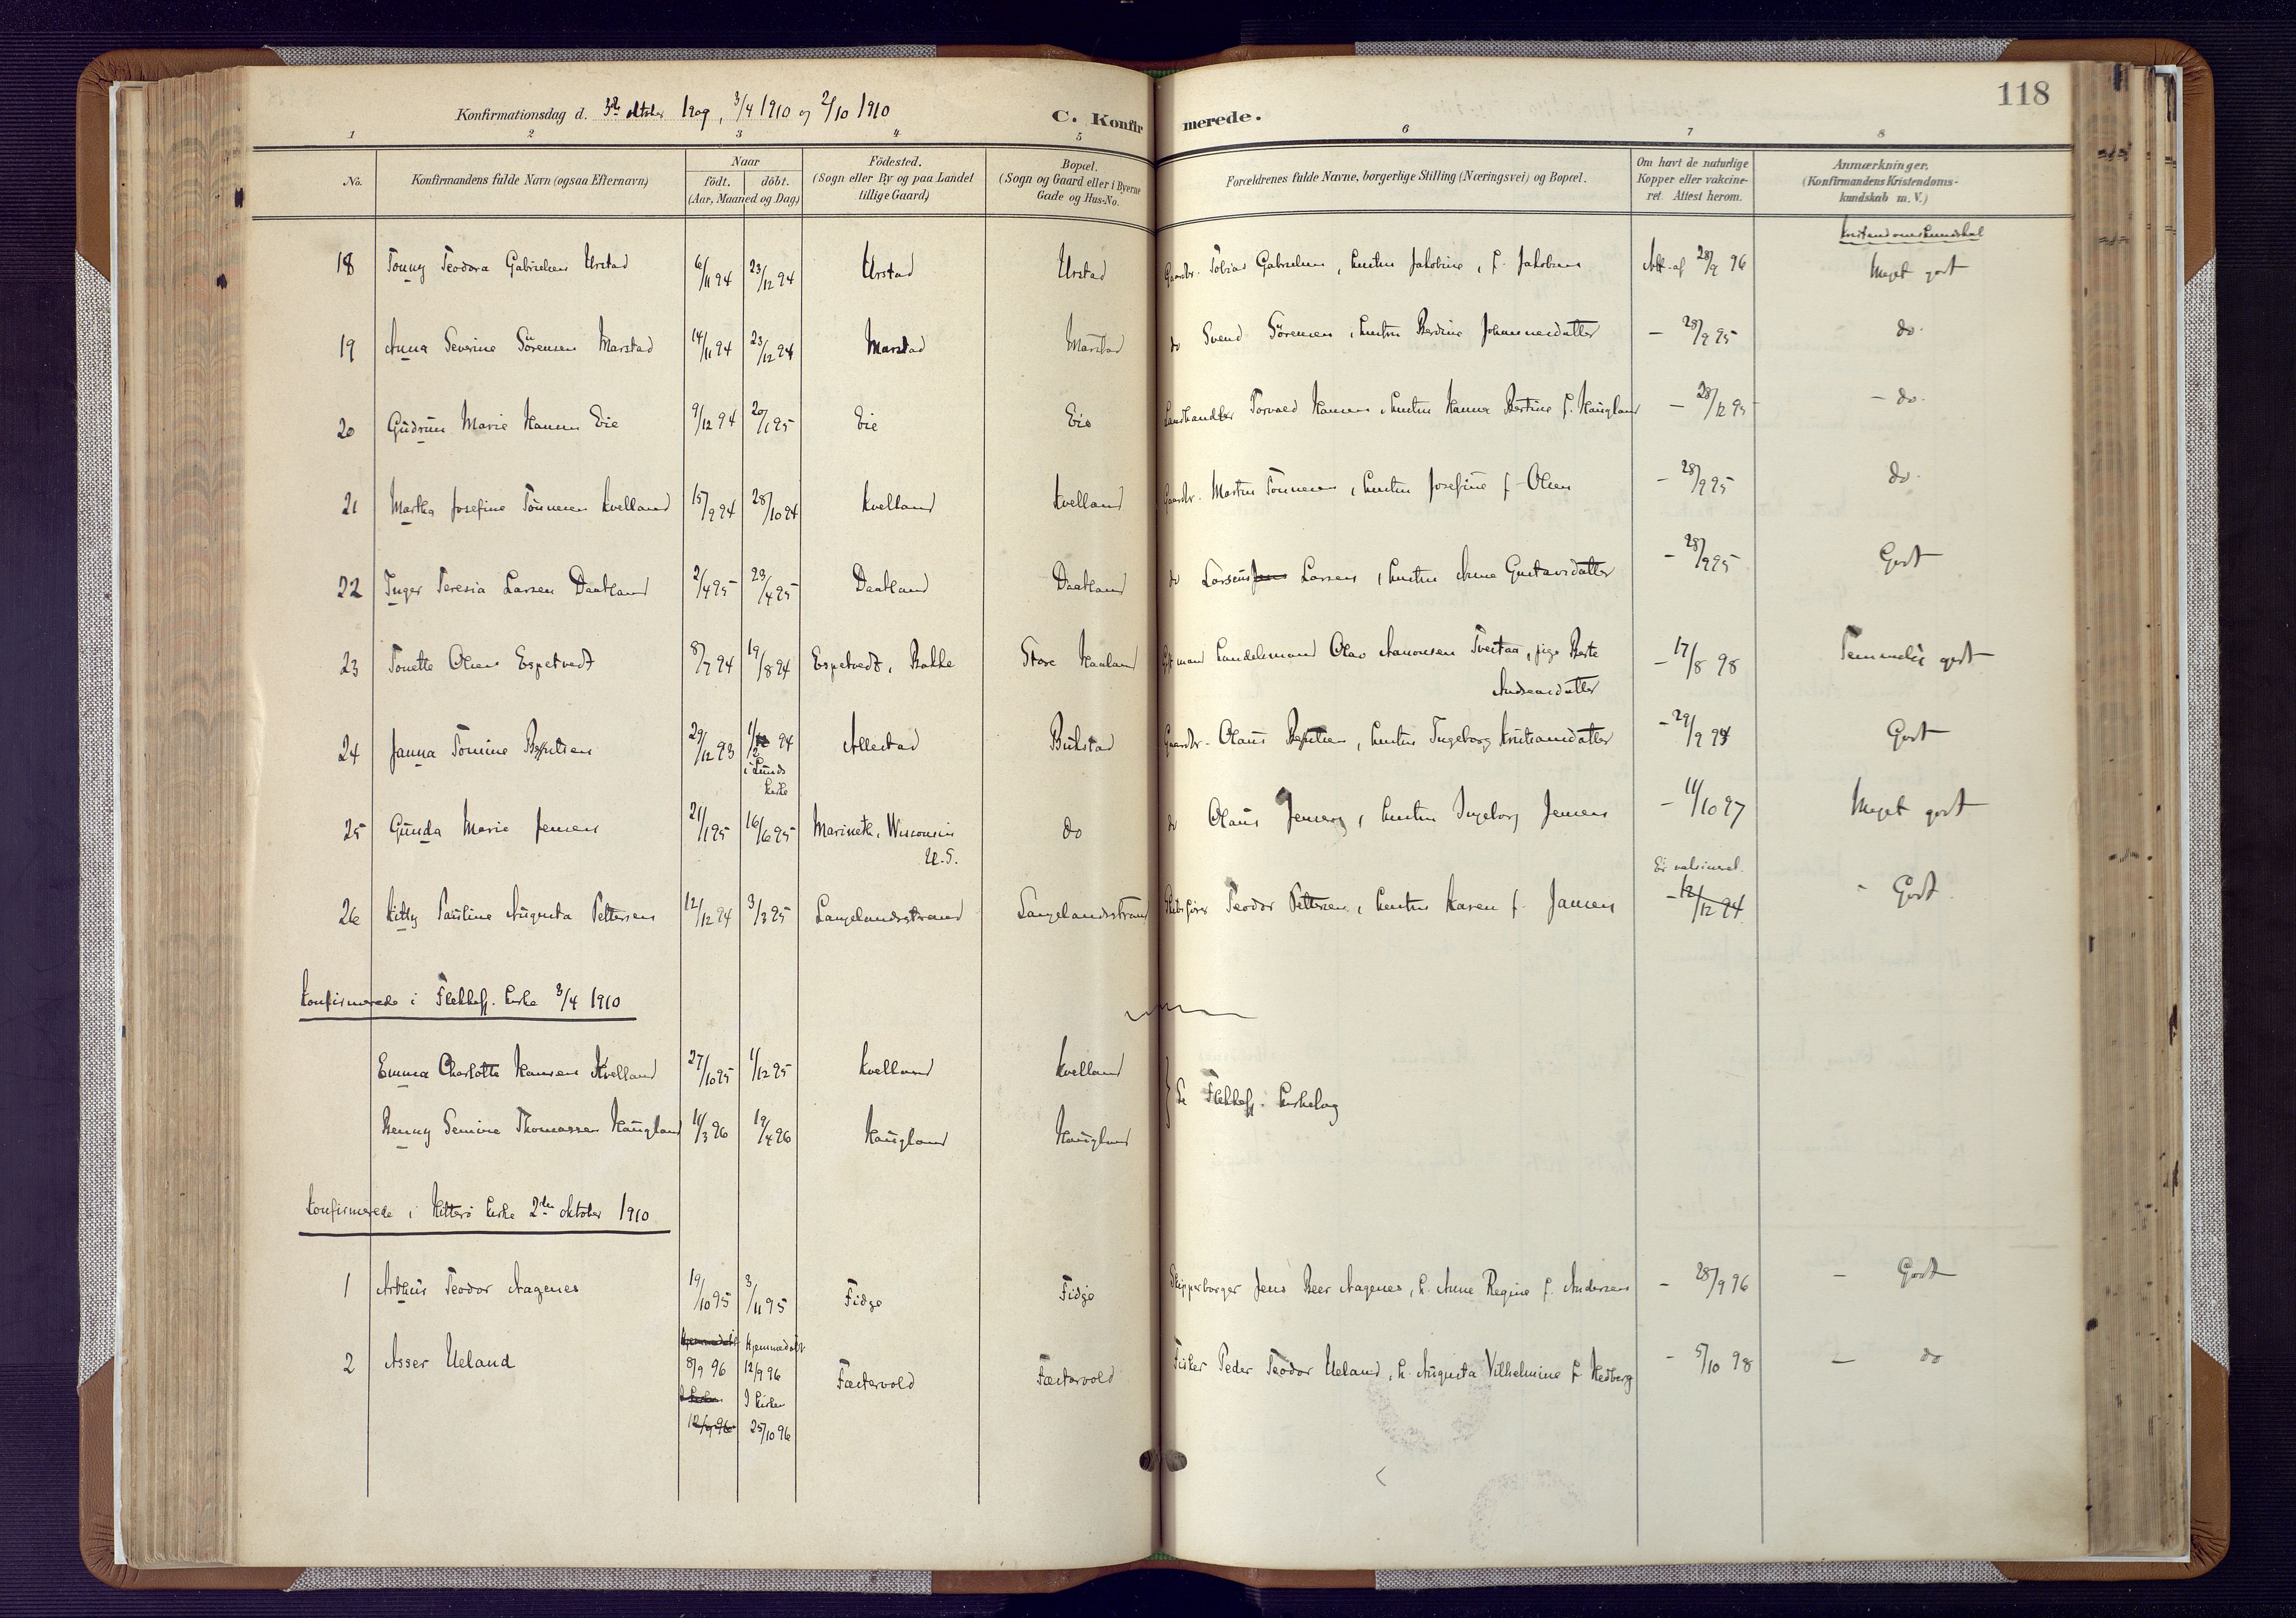 118
Konfirmationsdag d. 3die oktober 1909, 3/4 1910 og 2/10 1910 C. Konfirmerede.
1 2 3 4 5 6 7 8
No. Konfirmandens fulde Navn (ogsaa Efternavn) Naar födt. döbt. (Aar, Maaned og Dag)
Födested. (Sogn eller By og paa Landet tillige Gaard)
Bopæl. (Sogn og Gaard eller i Byerne Gade og Hus-No.
Forældrenes fulde Navne, borgerlige Stilling (Næringsvei) og Bopæl.
Om havt de naturlige Kopper eller vakcineret. Attest herom.
Anmærkninger. (Konfirmandens Kristendomskundskab m. V.)
Kristendomskundskab
18 Tonny Teodora Gabrielsen Urstad 6/11 94 23/12 94 Urstad Urstad Gaardbr. Tobias Gabrielsen, hustru Jakobine, f. Jakobsen Att. af 28/9 96 Meget godt
19 Anna Severine Sörensen Marstad 14/11 94 23/12 94 Marstad Marstad do Svend Sörensen, hustru Berdine Johannesdatter - 28/9 95 do.
20 Gudrun Marie Hansen Eie 9/12 94 20/1 95 Eie Eie Landhandler Torvald Hansen, hustru Hanna Bertine f. Haugland - 28/12 95 - do.
21 Martha Josefine Tönnesen Kvelland 15/9 94 28/10 94 Kvelland Kvelland Gaardbr. Martin Tönnesen, hustru Josefine f. Olsen - 28/9 95 do.
22 Inger Teresia Larsen Daatland 2/4 95 23/4 95 Daatland Daatland do Larsen, hustru Anne Gustavsdatter - 28/9 95 Godt
23 Tonette Olsen Espetvedt 8/7 94 19/8 94 Espetvedt, Bakke Store Haaland Landelsmand Olav Aanonsen Tveitaa, pige Berte - 17/8 98 Temmelig godt
Andreasdatter
24 Janna Tomine Berntsen 29/12 93 1/2 94 Allestad Bukstad Gaardbr. Olaus Berntsen, hustru Ingeborg Kristiansdatter - 29/9 94 Godt
i Lunds
kirke
25 Gunda Marie Jensen 21/1 95 16/6 95 Marinette, Wisconsin do do Olaus Jensen, hustru Ingeborg Jensen - 11/10 97 Meget godt
U.S.
Ei vakcineret.
26 Kitty Pauline Augusta Pettersen 12/12 94 3/3 95 Langelandsstrand Langelandsstrand Skibsfører Teodor Pettersen, hustru Karen f. Jansen - 12/12 94 - Godt
Konfirmerede i Flekkefj. kirke 3/4 1910
Emma Charlotte Hansen Kvelland 27/10 95 1/12 95 Kvelland Kvelland
Se Flekkefj. kirkebog
Benny Semine Thomassen Haugland 11/3 96 19/4 96 Haugland Haugland
Konfirmerede i Hitterö kirke 2den oktober 1910
1 Arthur Teodor Aagenes 19/10 95 3/11 95 Fidje Fidje Skipperborger Jens Beer Aagenes, h. Anne Regine f. Andersen - 28/9 96 - Godt
Hjemmedöbt Hjemmedöbt
2 Asser Ueland 8/9 96 12/9 96 Fæstervold Fæstervold Fisker Peder Teodor Ueland, h. Augusta Vilhelmine f. Hedberg - 5/10 98 - do
I kirken I kirken
12/9 96 25/10 96